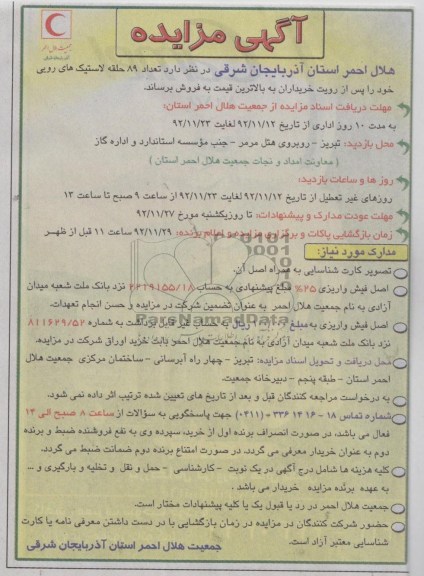 جمعیت هلال احمر
آگهی مزایده
هلال احمر استان آذربایجان شرقی در نظر دارد تعداد ۸۹ حلقه لاستیک های رویی
خود را پس از رویت خریداران به بالاترین قیمت به فروش برساند.
مهلت دریافت اسناد مزایده از جمعیت هلال احمر استان:
به مدت ۱۰ روز اداری از تاریخ ۹۲/۱۱/۱۲ لغایت ۹۲/۱۱/۲۳
محل بازدید: تبریز - روبروی هتل مرمر - جنب مؤسسه استاندارد و اداره گاز
( معاونت امداد و نجات جمعیت هلال احمر استان )
روز ها و ساعات بازدید:
روزهای غیر تعطیل از تاریخ ۹۲/۱۱/۱۲ لغایت ۹۲/۱۱/۲۳ از ساعت ۹ صبح تا ساعت ۱۳
مهلت عودت مدارک و پیشنهادات: تا روزیکشنبه مورخ ۹۲/۱۱/۲۷
زمان بازگشایی پاکات و برگزاری مزایده و اعلام برنده: ۹۲/۱۱/۲۹ ساعت ۱۱ قبل از ظهر
مدارک مورد نیاز:
تصویر کارت شناسایی به همراه اصل آن.
اصل فیش واریزی ۲۵% مبلغ پیشنهادی به حساب ۲۲۲۹۱۵۵/۱۸ نزد بانک ملت شعبه میدان
آزادی به نام جمعیت هلال احمر به عنوان تضمین شرکت در مزایده و حسن انجام تعهدات.
اصل فیش واریزی به مبلغ ریال به حساب غیر قابل برداشت به شماره ۸۱۱۶۲۹/۵۲
نزد بانک ملت شعبه میدان آزادی به نام جمعیت هلال احمر بابت خرید اوراق شرکت در مزایده.
محل دریافت و تحویل اسناد مزایده: تبریز - چهار راه آبرسانی - ساختمان مرکزی جمعیت هلال
احمر استان - طبقه پنجم - دبیرخانه جمعیت.
به درخواست مراجعه کنندگان قبل و بعد از تاریخ های تعیین شده ترتیب اثر داده نمی شود.
شماره تماس ۱۸ - ۱۶ ۱۴ ۳۳۶ (۰۴۱۱) جهت پاسخگویی به سؤالات از ساعت ۸ صبح الی ۱۴
فعال می باشد، در صورت انصراف برنده اول از خرید، سپرده وی به نفع فروشنده ضبط و برنده
دوم به عنوان خریدار معرفی می گردد. در صورت امتناع برنده دوم ضمانت ضبط می گردد.
کلیه هزینه ها شامل درج آگهی در یک نوبت - کارشناسی - حمل و نقل و تخلیه و بارگیری و ...
به عهده برنده مزایده خریدار می باشد .
جمعیت هلال احمر در رد یا قبول یک یا کلیه پیشنهادات مختار است.
حضور شرکت کنندگان در مزایده در زمان بازگشایی با در دست داشتن معرفی نامه یا کارت
شناسایی معتبر آزاد است.
جمعیت هلال احمر استان آذربایجان شرقی
ParsNamadData